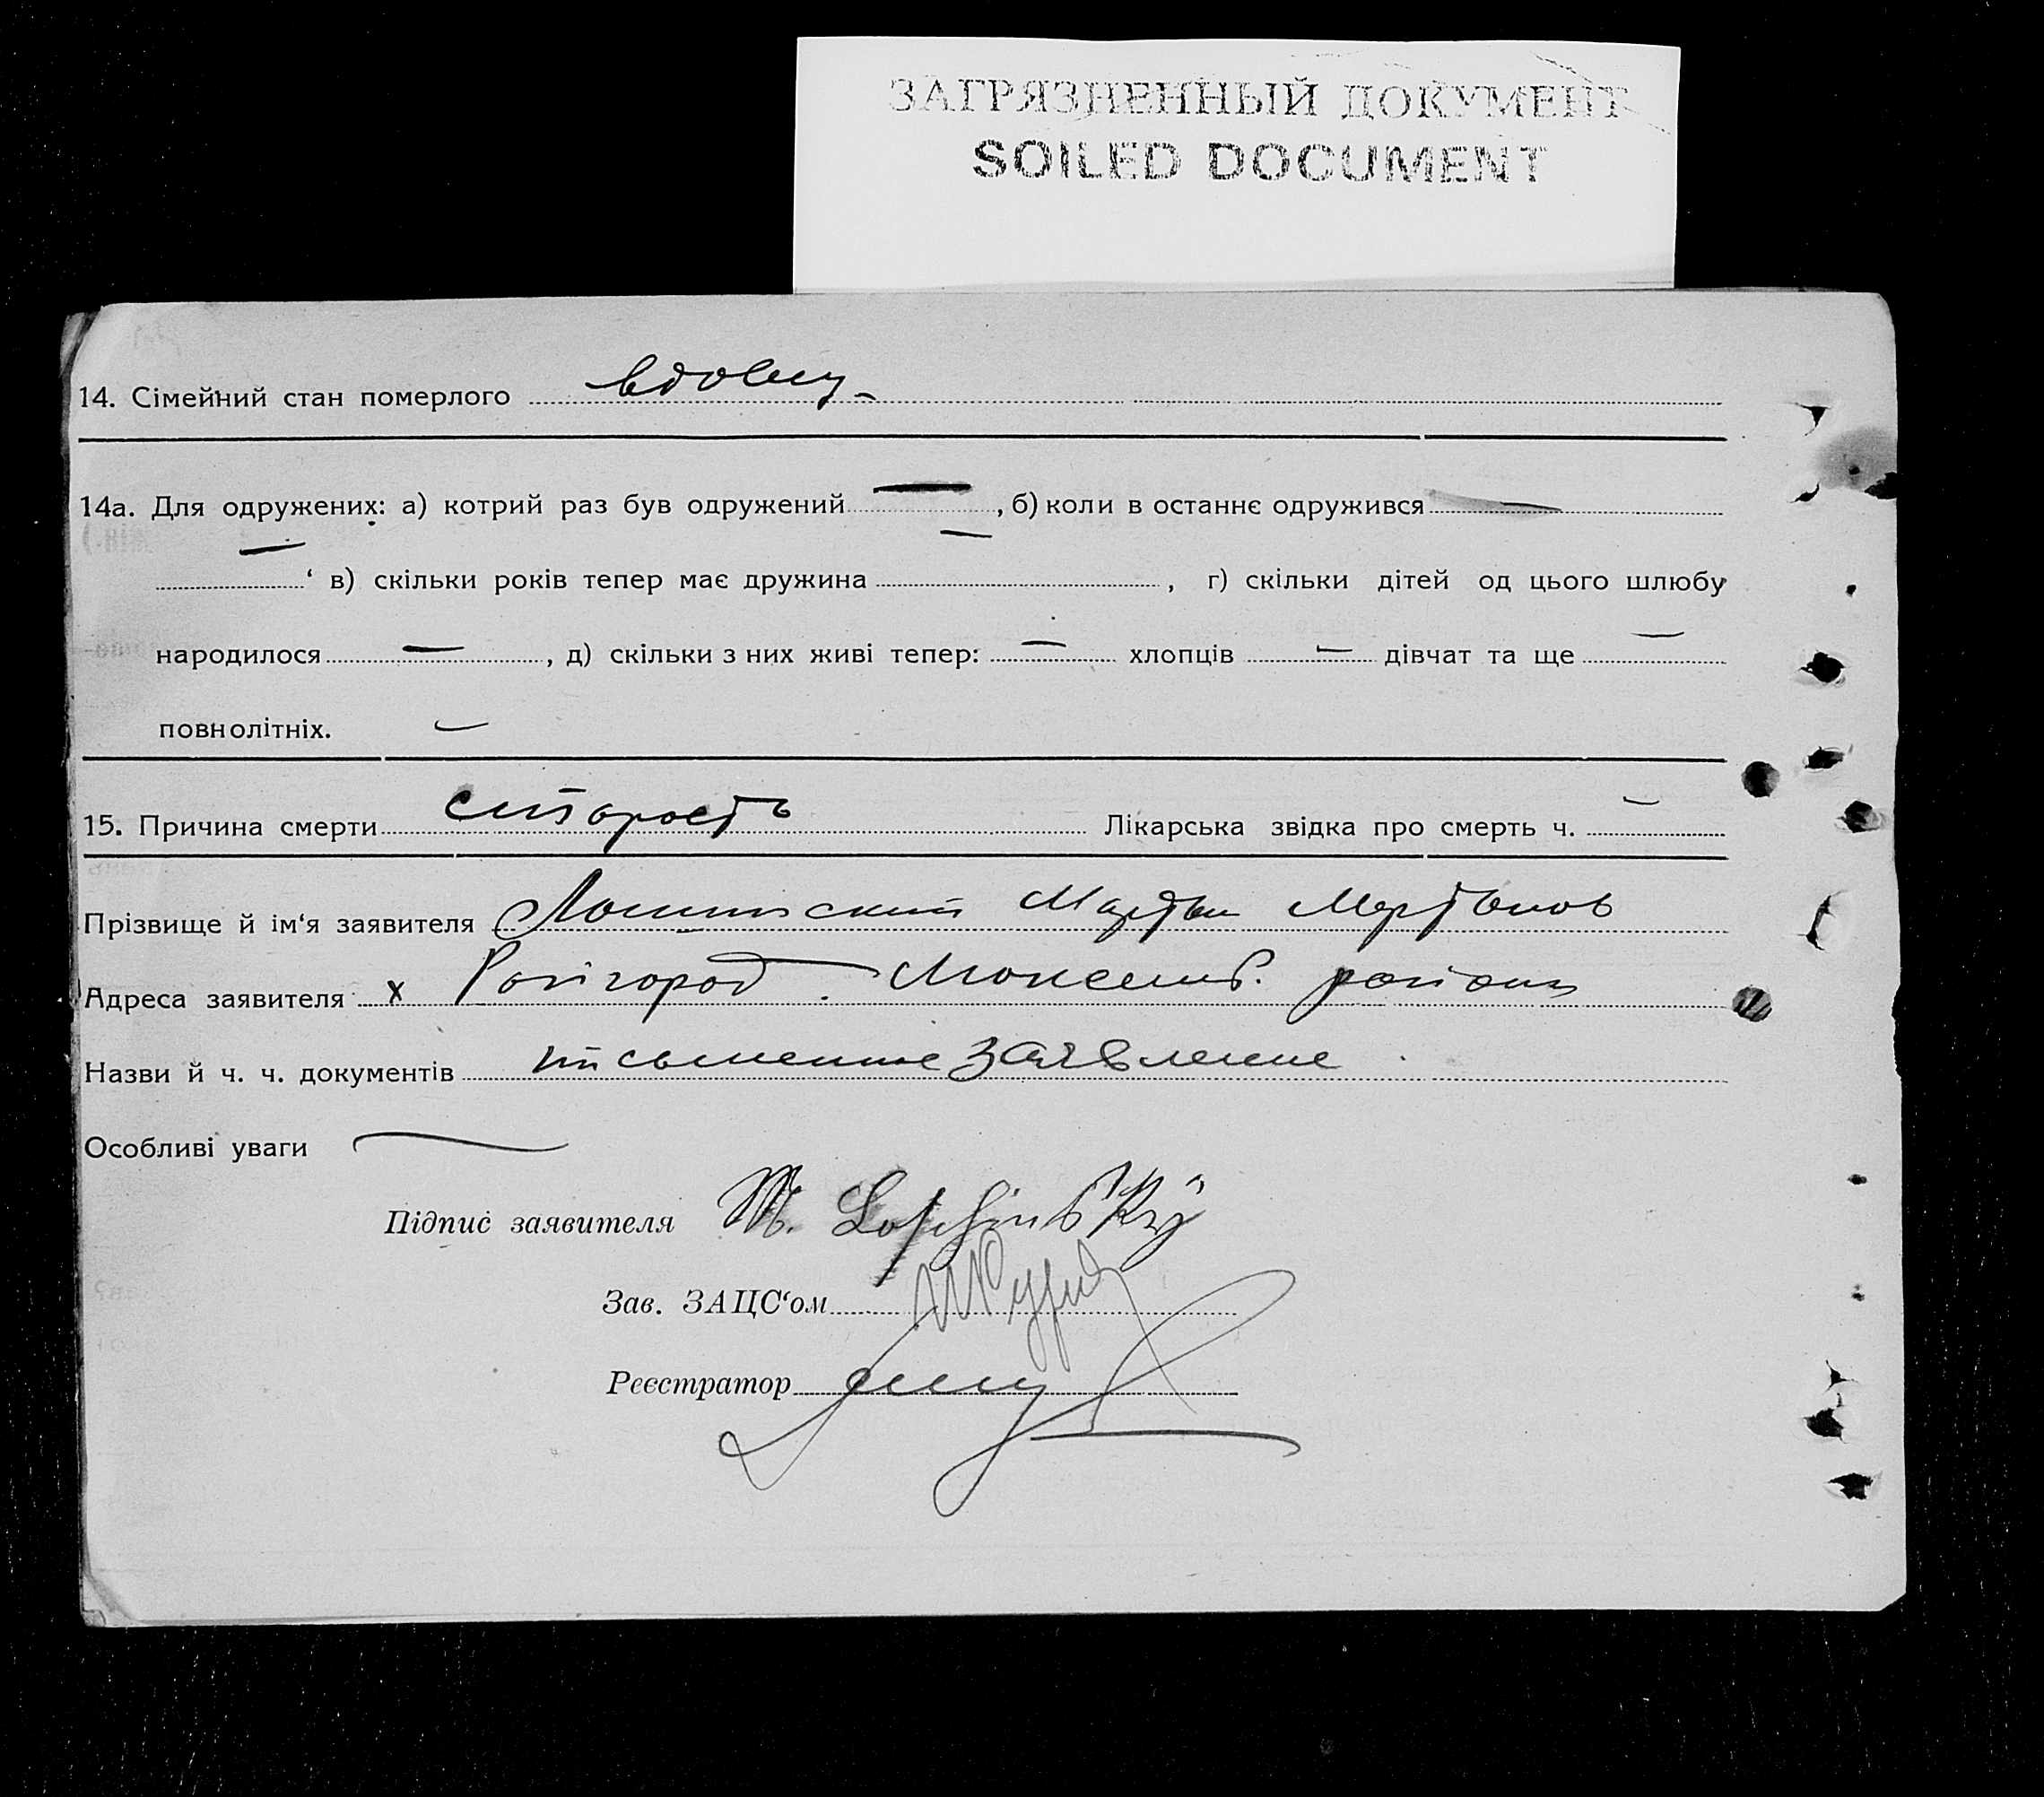 ЗАГРЯЗНЕННЫЙ ДОКУМЕНТ
SOILED DOCUMENT
14. Сімейний стан померлого
14а. Для одружених: а) котрий раз був одружений — , б) коли в останнє одружився —
— ‘ в) скільки років тепер має дружина — , г) скільки дітей од цього шлюбу
народилося — , д) скільки з них живі тепер: — хлопців — дівчат та ще —
повнолітніх. —
15. Причина смерти старость Лікарська звідка про смерть ч. —
Прізвище й ім‘я заявителя
Адреса заявителя х
Назви й ч. ч. документів письменное заявление
Особливі уваги —
Підпис заявителя M. Loschinsky
Зав. ЗАЦС‘ом
Реєстратор